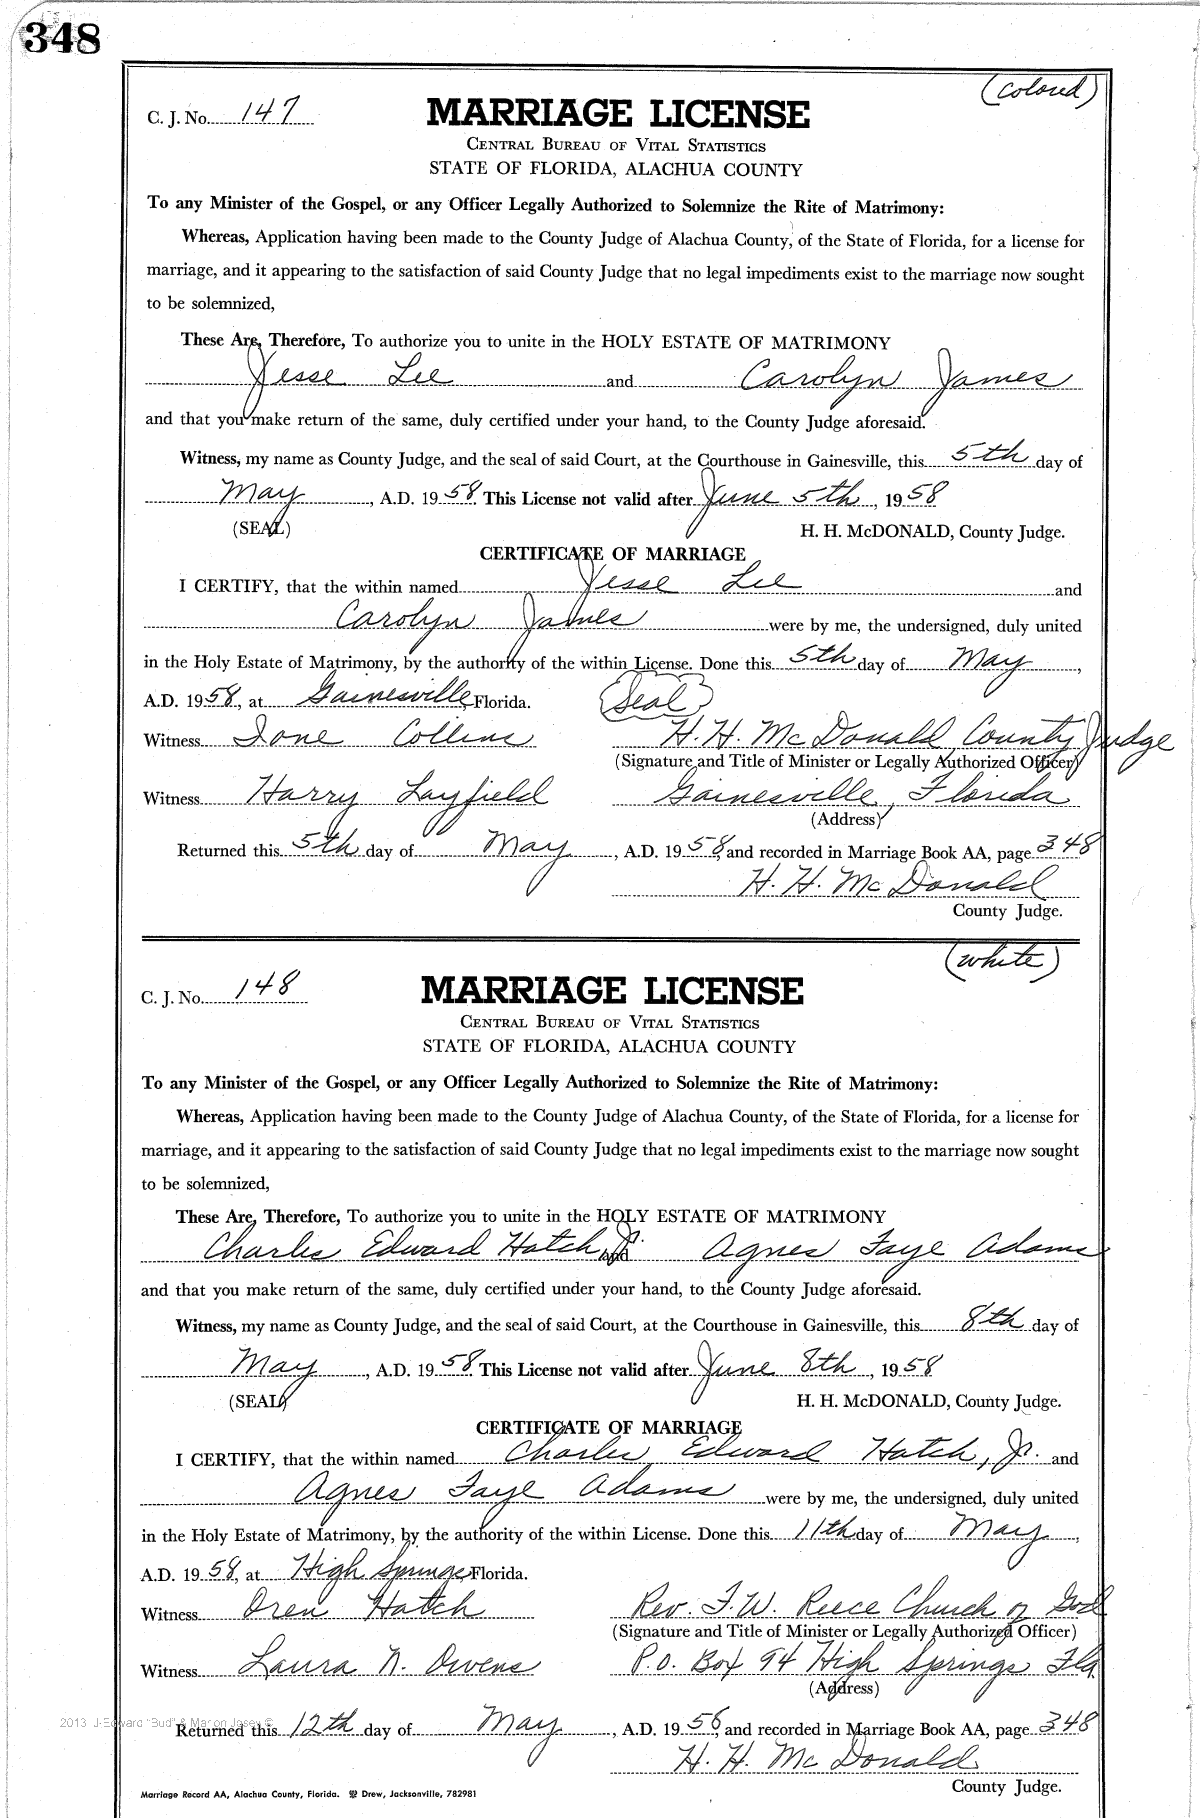 348
(colored)
C. J. No. 147
MARRIAGE LICENSE
CENTRAL BUREAU OF VITAL STATISTICS
STATE OF FLORIDA, ALACHUA COUNTY
To any Minister of the Gospel, or any Officer Legally Authorized to Solemnize the Rite of Matrimony:
Whereas, Application having been made to the County Judge of Alachua County, of the State of Florida, for a license for
marriage, and it appearing to the satisfaction of said County Judge that no legal impediments exist to the marriage now sought
to be solemnized,
These Are, Therefore, To authorize you to unite in the HOLY ESTATE OF MATRIMONY
Jesse Lee and Carolyn James
and that you make return of the same, duly certified under your hand, to the County Judge aforesaid.
Witness, my name as County Judge, and the seal of said Court, at the Courthouse in Gainesville, this 5th day of
May, A.D. 1958. This License not valid after June 5th, 1958
(SEAL) H. H. McDONALD, County Judge.
CERTIFICATE OF MARRIAGE
I CERTIFY, that the within named Jesse Lee and
Carolyn James were by me, the undersigned, duly united
in the Holy Estate of Matrimony, by the authority of the within License. Done this 5th day of May,
A.D. 1958, at Gainesville, Florida. Seal
Witness Ione Collins H. H. McDonald County Judge
(Signature and Title of Minister or Legally Authorized Officer)
Witness Harry Layfield Gainesville, Florida
(Address)
Returned this 5th day of May, A.D. 1958, and recorded in Marriage Book AA, page 348
H. H. McDonald
County Judge.
(white)
C. J. No. 148
MARRIAGE LICENSE
CENTRAL BUREAU OF VITAL STATISTICS
STATE OF FLORIDA, ALACHUA COUNTY
To any Minister of the Gospel, or any Officer Legally Authorized to Solemnize the Rite of Matrimony:
Whereas, Application having been made to the County Judge of Alachua County, of the State of Florida, for a license for
marriage, and it appearing to the satisfaction of said County Judge that no legal impediments exist to the marriage now sought
to be solemnized,
These Are, Therefore, To authorize you to unite in the HOLY ESTATE OF MATRIMONY
Charles Edward Hatch, Jr. and Agnes Faye Adams
and that you make return of the same, duly certified under your hand, to the County Judge aforesaid.
Witness, my name as County Judge, and the seal of said Court, at the Courthouse in Gainesville, this 8th day of
May, A.D. 1958. This License not valid after June 8th, 1958
(SEAL) H. H. McDONALD, County Judge.
CERTIFICATE OF MARRIAGE
I CERTIFY, that the within named Charles Edward Hatch, Jr. and
Agnes Faye Adams were by me, the undersigned, duly united
in the Holy Estate of Matrimony, by the authority of the within License. Done this 11th day of May,
A.D. 1958, at High Springs, Florida.
Witness Oren Hatch Rev. F. W. Reece Church of God
(Signature and Title of Minister or Legally Authorized Officer)
Witness Laura N. Owens P.O. Box 94 High Springs, Fla.
(Address)
2013 J-Edward "Bud" & Marion Jasey ©
Returned this 12th day of May, A.D. 1958, and recorded in Marriage Book AA, page 348
H. H. McDonald
County Judge.
Marriage Record AA, Alachua County, Florida. Drew, Jacksonville, 782981